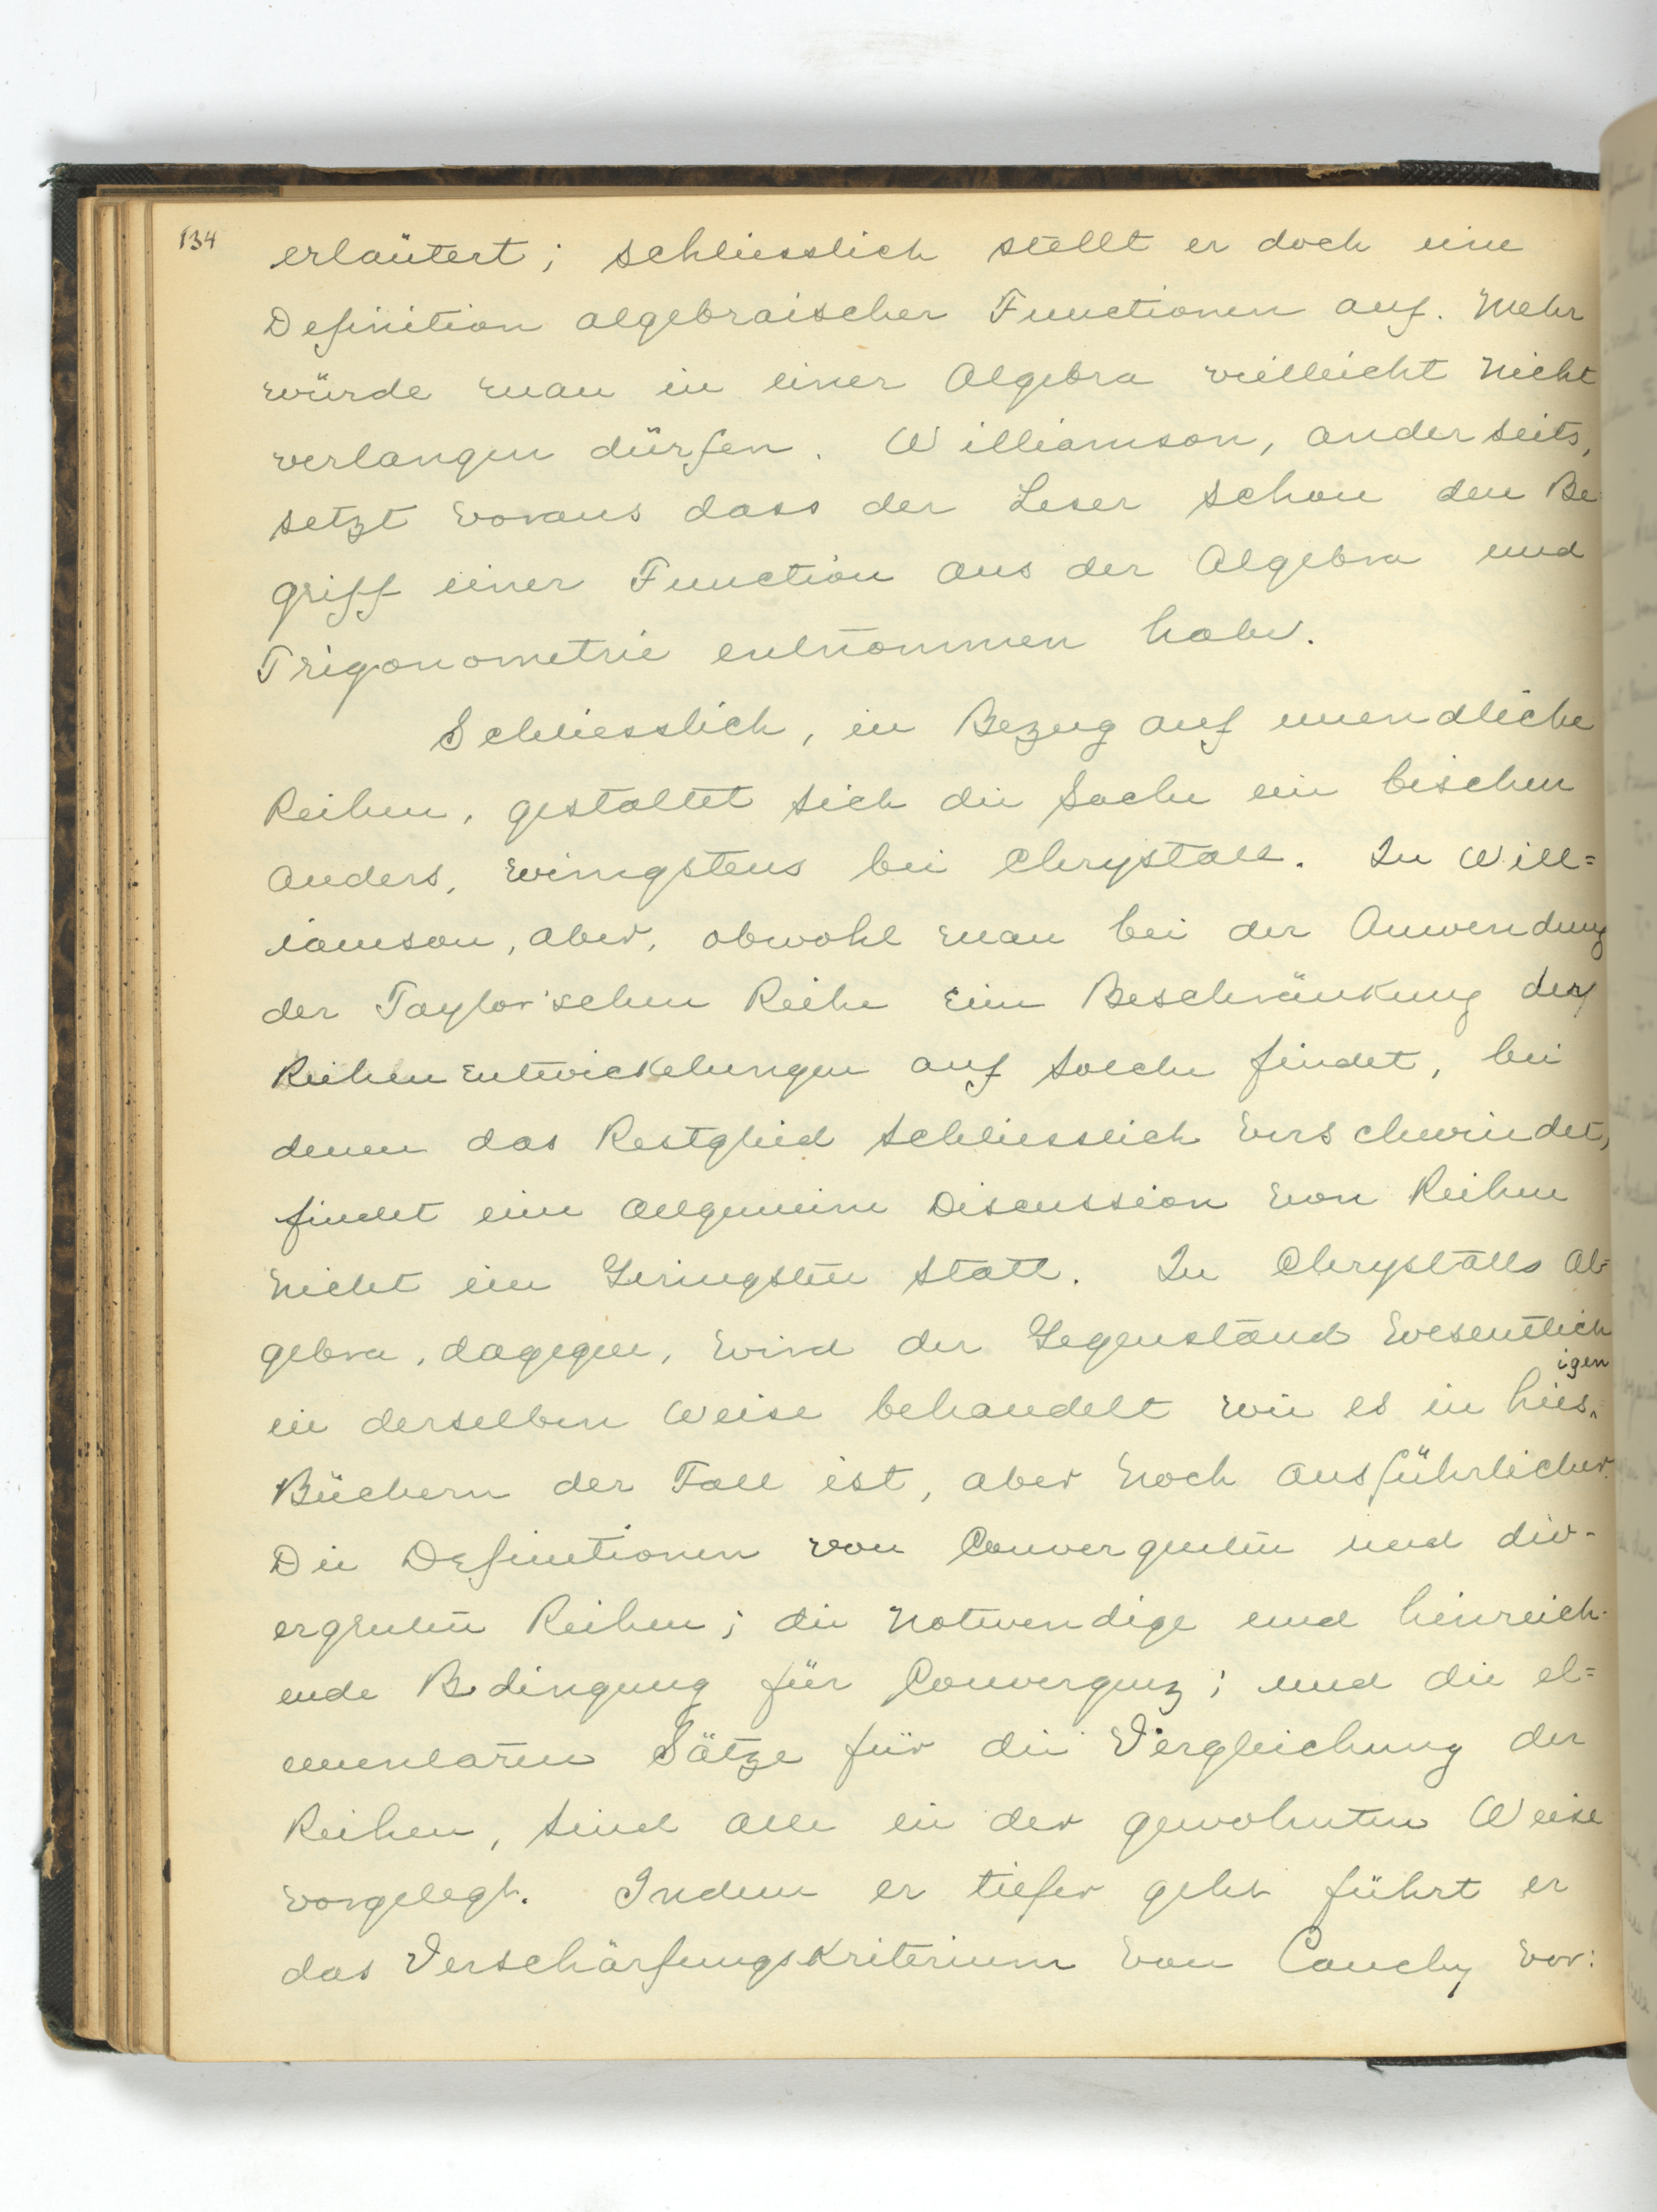 134
erläutert; schliesslich stellt er doch eine
Definition algebraischer Functionen auf. Mehr
würde man in einer Algebra vielleicht nicht
verlangen dürfen. Williamson, anderseits,
setzt voraus dass der Leser schon den Be
griff einer Function aus der Algebra und
Trigonometrie entnommen habe.
Schliesslich, in Bezug auf unendliche
Reihen, gestaltet sich die Sache ein bischen
anders, wenigstens bei Chrystall. In Will=
iamson, aber, obwohl man bei der Anwendung
der Taylor'schen Reihe eine Beschränkung der
Reihenentwickelungen auf solche findet, bei
denen das Restglied schliesslich verschwindet,
findet eine allgemeine Discussion von Reihen
nicht im Geringsten statt. In Chrystalls Al=
gebra, dagegen, wird der Gegenstand wesentlich
in derselben Weise behandelt wie es in hiesigen
Büchern der Fall ist, aber noch ausführlicher.
Die Definitionen von convergenten und div-
ergenten Reihen; die notwendige und hinreich-
ende Bedingung für Convergenz; und die el=
ementaren Sätze für die Vergleichung der
Reihen, sind alle in der gewohnten Weise
vorgelegt. Indem er tiefer geht führt er
das Verschärfungskriterium von Cauchy vor: